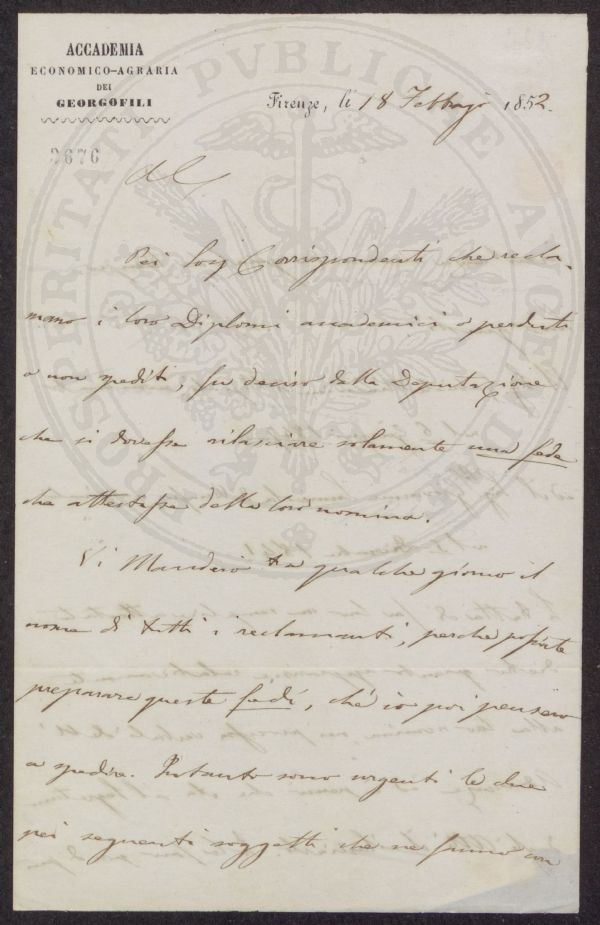 ACCADEMIA
ECONOMICO-AGRARIA
DEI
GEORGOFILI
Firenze, li 18 Febbrajo 1852.
2676
Pei Socj Corrispondenti che recla-
mano i loro Diplomi accademici o perduti
o non spediti, fu deciso dalla Deputazione
che si dovesse rilasciare solamente una fede
che attestasse della loro nomina.
Vi Manderò tra qualche giorno il
nome di tutti i reclamanti, perche possiate
preparare queste fedi, che io poi penserò
a spedire. Intanto sono urgenti le due
pei seguenti soggetti che ne fanno con
PROSPERITATI PVBLICAE AVGENDAE